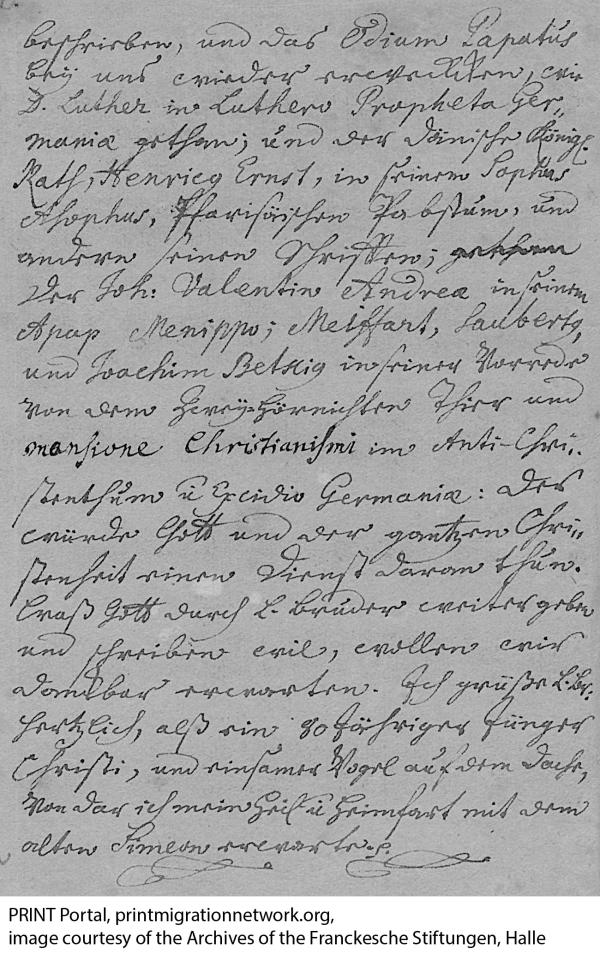 beschrieben, und das Odium Papatus
bey uns wieder erweckten, wie
D. Luther in Luthero Propheta Ger„
maniæ gethan; und der dänische Königl.
Rath, Henricq Ernst, in seinem Sophus
Asophus, Pfarisäischen Pabstum, und
andern seinen Schrifften;
Der Joh: Valentin Andreæ in seinem
Apap Menippo; Meiffart, Saubertq,
und Joachim Betkig in seiner Vorrede
von dem Zwey-Hörnichten Thier und
mansione Christianismi im Anti-Chri„
stenthum u Excidio Germaniæ: Der
würde Gott und der gantzen Chri„
stenheit einen Dienst daran thun.
Waß Gott durch L. Bruder weiter geben
und schreiben wil, wollen wir
danckbar erwarten. Ich grüße L. Br.
hertzlich, alß ein 80 Jähriger Jünger
Christi, und einsamer Vogel auf dem Dache,
von dar ich mein Heil u Heimfart mit dem
alten Simeon erwarte
PRINT Portal, printmigrationnetwork.org,
image courtesy of the Archives of the Franckesche Stiftungen, Halle